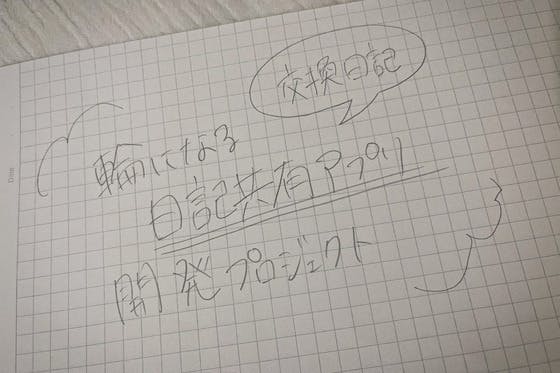 交換日記
輪になる
日記共有アプリ
開発プロジェクト